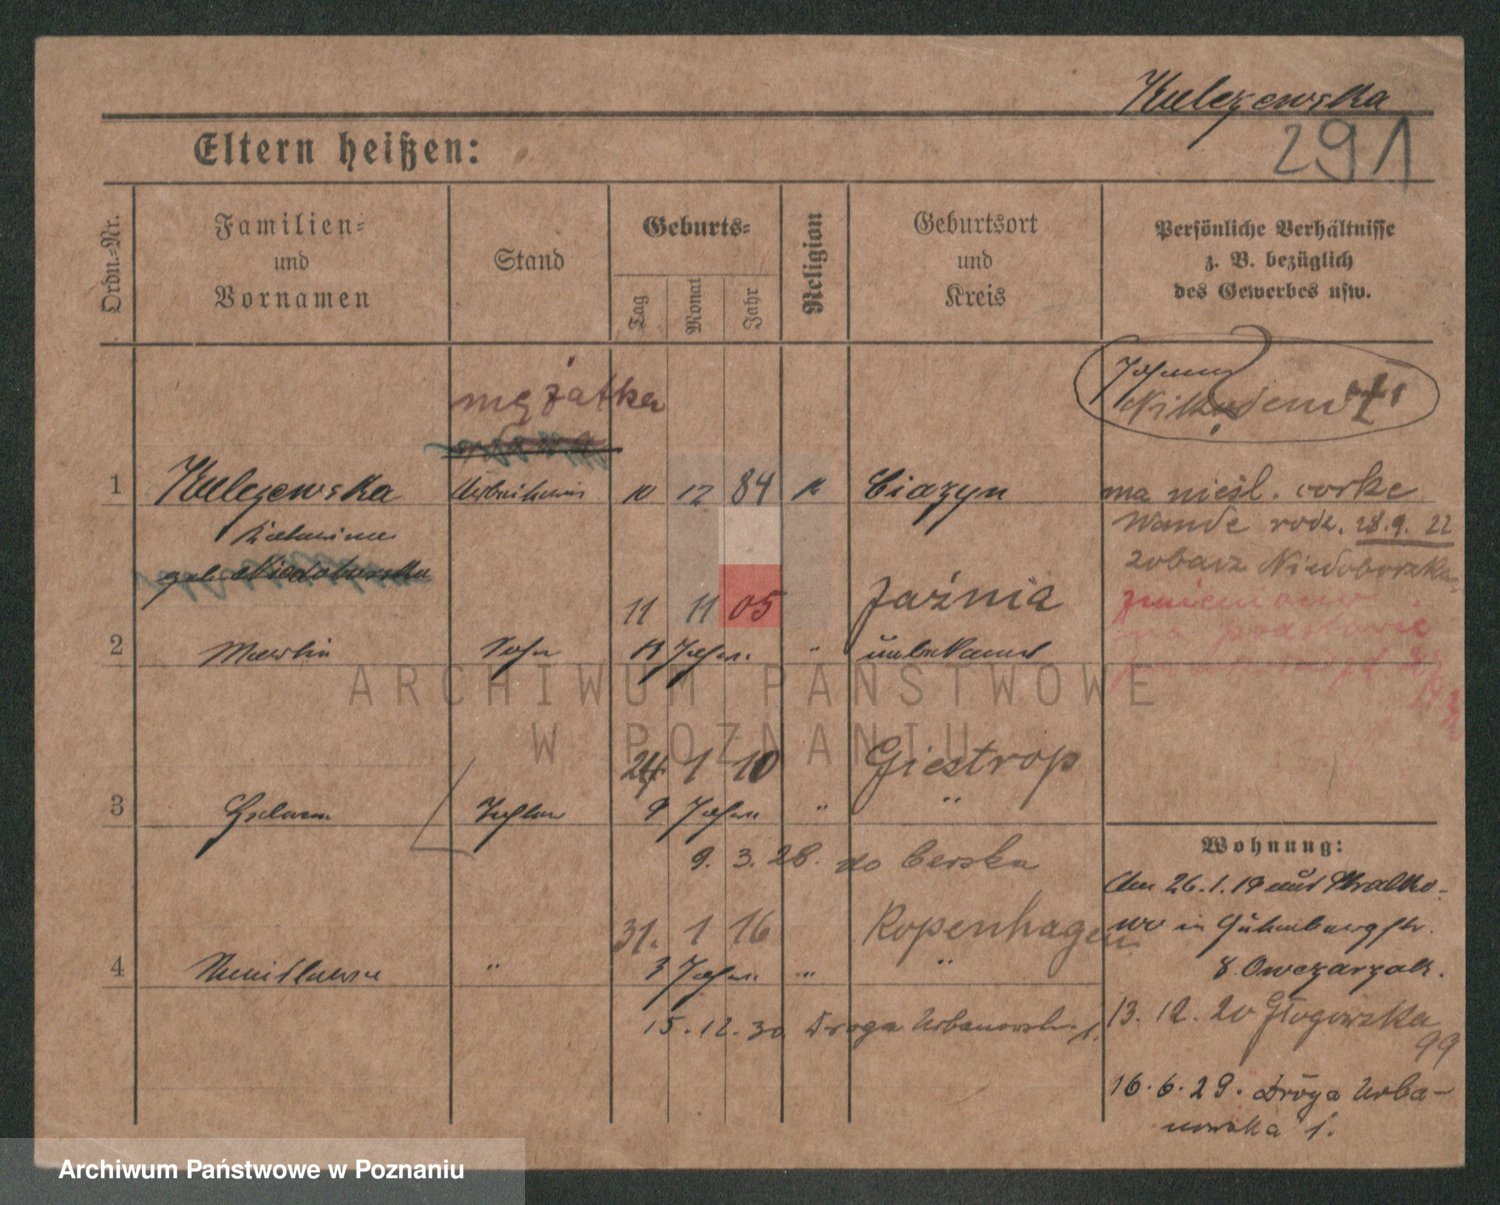 Kulczewska
291
Eltern heißen:
Ordn.-Nr.
Familien-
und
Vornamen
Stand
Geburts-
Tag
Monat
Jahr
Religion
Geburtsort
und
Kreis
Persönliche Verhältnisse
z. B. bezüglich
des Gewerbes usw.
mężatka
Johann
1 Kulczewska Arbeiterin 10 12 84 k Ciazyn
ma nieśl. corke
Wande rodz. 28.9.22
geb. Niedoborska
zobacz Niedoborska
11 11 05 Jaźnia
zmieniono
na podstawie
2 Martin Sohn 13 Jahre " unbekannt
ARCHIWUM PAŃSTWOWE
W POZNANIU
24. 1 10 Giestrop
3 Tochter 9 Jahre " "
Wohnung:
9. 3. 28. do Cerska
Am 26.1.19 aus Stralko-
31. 1 16 Kopenhagen
wo in Gutenbergstr.
4 " 3 Jahre " "
8. Owczarzak.
15. 12. 30 Droga Urbanowsk. 1.
13. 12. 20 Głogowska
99
16. 6. 29. Droga Urba-
nowska 1.
Archiwum Państwowe w Poznaniu